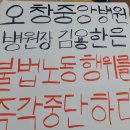 오창중앙병원
병원장 김용한은
불법노동행위를
즉각중단하라